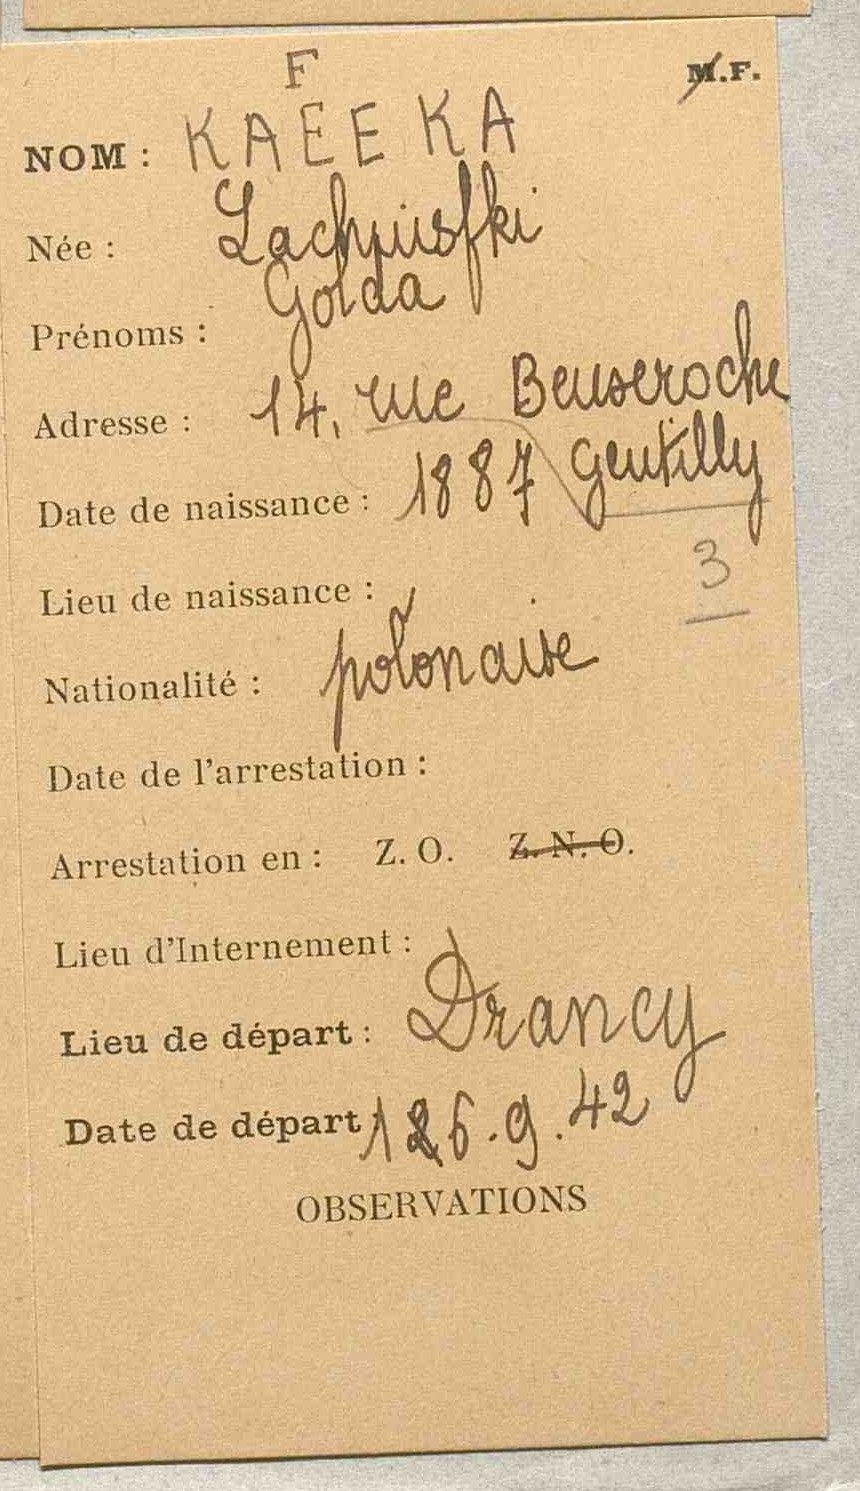 F
M.F.
NOM : KAEEKA
Née : Lachpusfki
Prénoms : Golda
Adresse : 14, rue Beuseroche
Gentilly
Date de naissance : 1887
3
Lieu de naissance :
Nationalité : polonaise
Date de l'arrestation :
Arrestation en : Z. O. Z. N. O.
Lieu d'Internement :
Lieu de départ : Drancy
Date de départ 16.9.42
OBSERVATIONS